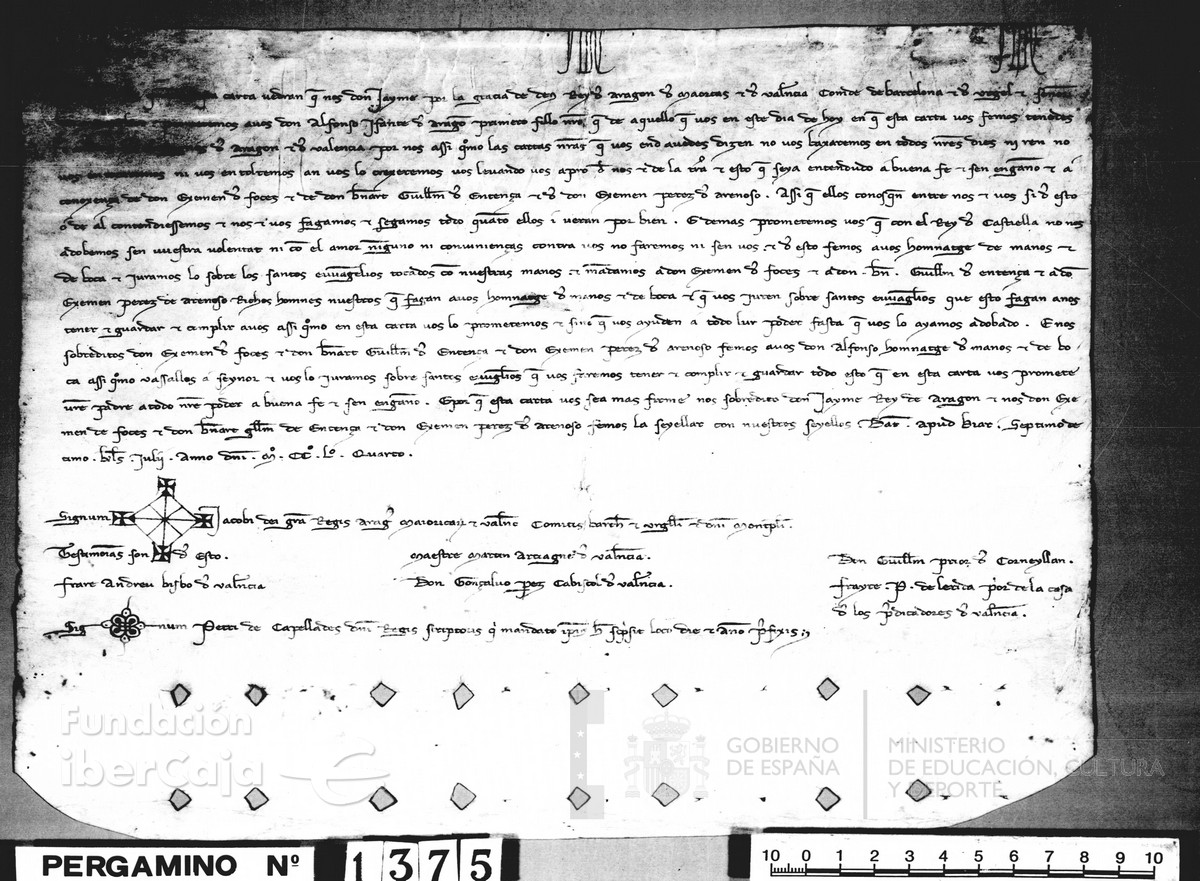 carta veran q̃ nos don Jayme por la gracia de deu Rey d̃ Aragon d̃ Maiorcas ⁊ d̃ valẽncia Comde de barcelona ⁊ d̃ urgel ⁊
auos don Alfonso Ifante d̃ Arago primero fillo nr̃e q̃ de aquello q̃ vos en este dia de hoy en q̃ esta carta vos femos tenedes
d̃ Aragon ⁊ d̃ valencia por nos assi q̃mo las cartas nr̃as q̃ vos end auedes dizen no vos baxaremos en todos nr̃es dies ni ren no
ni vos en toltremos an vos lo crexeremos vos leuando vos apro d̃ nos ⁊ de la trã ⁊ esto q̃ seya entendudo a buena fe ⁊ sen engano ⁊ a
conoxença de don Exemen d̃ foces ⁊ de don bñart Guill̃m d̃ Entença ⁊ d̃ don Exemen perez d̃ arenoso. Assi q̃ ellos conosq̃n entre nos ⁊ vos si d̃ esto
o de al contendiessemos ⁊ nos ⁊ vos fagamos ⁊ segamos todo quãto ellos i veran por bien. E demas prometemos vos q̃ con el Rey d̃ Castiella no nos
adobemos sen vuestra volentat ni cõ el amor niguno ni conuiniençes contra vos no faremos ni sen vos. ⁊ d̃ esto femos auos homnatge de manos ⁊
de boca ⁊ iuramos lo sobre los santos euuãgelios tocados cõ nuestras manos. ⁊ mãdamos a don Exemen d̃ foces ⁊ a don. bñ. Guill̃m d̃ entença ⁊ a dõ
Exemen perez de arenoso Richos homnes nuestros q̃ fagan auos homnatge d̃ manos ⁊ de boca ⁊ q̃ vos iuren sobre santos euuãgl̃ios que esto fagan anos
tener ⁊ guardar ⁊ cumplir auos assi q̃mo en esta carta vos lo prometemos ⁊ sino q̃ vos ayuden a todo lur poder fasta q̃ vos lo ayamos adobado. E nos
sobreditos don Exemen d̃ foces ⁊ don bñart Guill̃m d̃ Entença ⁊ don Exemen perez d̃ arenoso femos auos don Alfonso homnatge d̃ manos ⁊ de bo
ca assi q̃mo vassallos a seynor ⁊ vos lo iuramos sobre santes euuãgl̃ios q̃ vos faremos tener ⁊ complir ⁊ guardar todo esto q̃ en esta carta vos promete
ur̃e padre a todo nr̃e poder a buena fe ⁊ sen engano. E por q̃ esta carta vos sea mas firme nos sobredito don Jayme Rey de Aragon ⁊ nos don Exe
men de foces ⁊ don bñart gll̃m de Entença ⁊ don Exemen perez d̃ Arenoso femos la seyellar con nuestros seyellos. Dat. apud Biar. Septimo de
cimo. kl̃s. Julij. Anno dñi. Mº. CCº. Lº. Quarto.
Signum Jacobi dei grã Regis Arag̃ Maioricar̃ ⁊ valñe Comitis barch̃ ⁊ urgll̃i ⁊ dñi Montpl̃i.
Testimonias son d̃ esto.
frare Andreu bisbo d̃ valẽncia
Maestre Martin Arciagne d̃ valẽncia.
Don Gonçaluo perez Cabiscol d̃ valẽncia.
Don Guill̃m prior d̃ Corneyllan.
frayre. P. de lerida prior de la casa
d̃ los p̃dicadores d̃ valẽncia.
Sig num Petri de Capellades dñi Regis scriptoris q̃ mandato ip̃ius h̃ sc̃psit loco die ⁊ anno p̃fixis
Fundación
iberCaja
GOBIERNO
DE ESPAÑA
MINISTERIO
DE EDUCACIÓN, CULTURA
Y DEPORTE
PERGAMINO Nº 1375
10 0 1 2 3 4 5 6 7 8 9 10